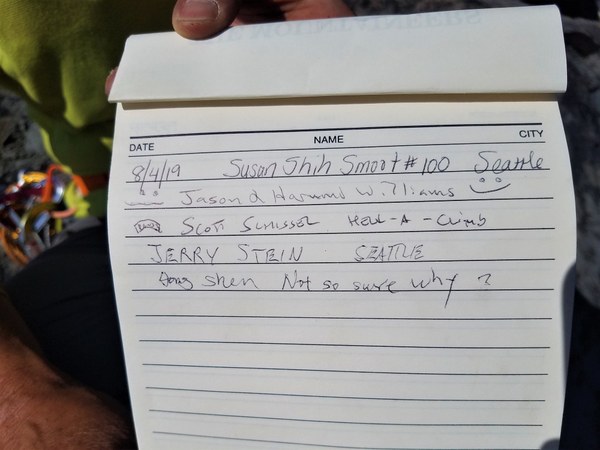 DATE NAME CITY
8/4/19 Susan Shih Smoot #100 Seattle
Jason & Williams
Scott Hell-A-Climb
JERRY STEIN SEATTLE
Shen Not so sure why ?